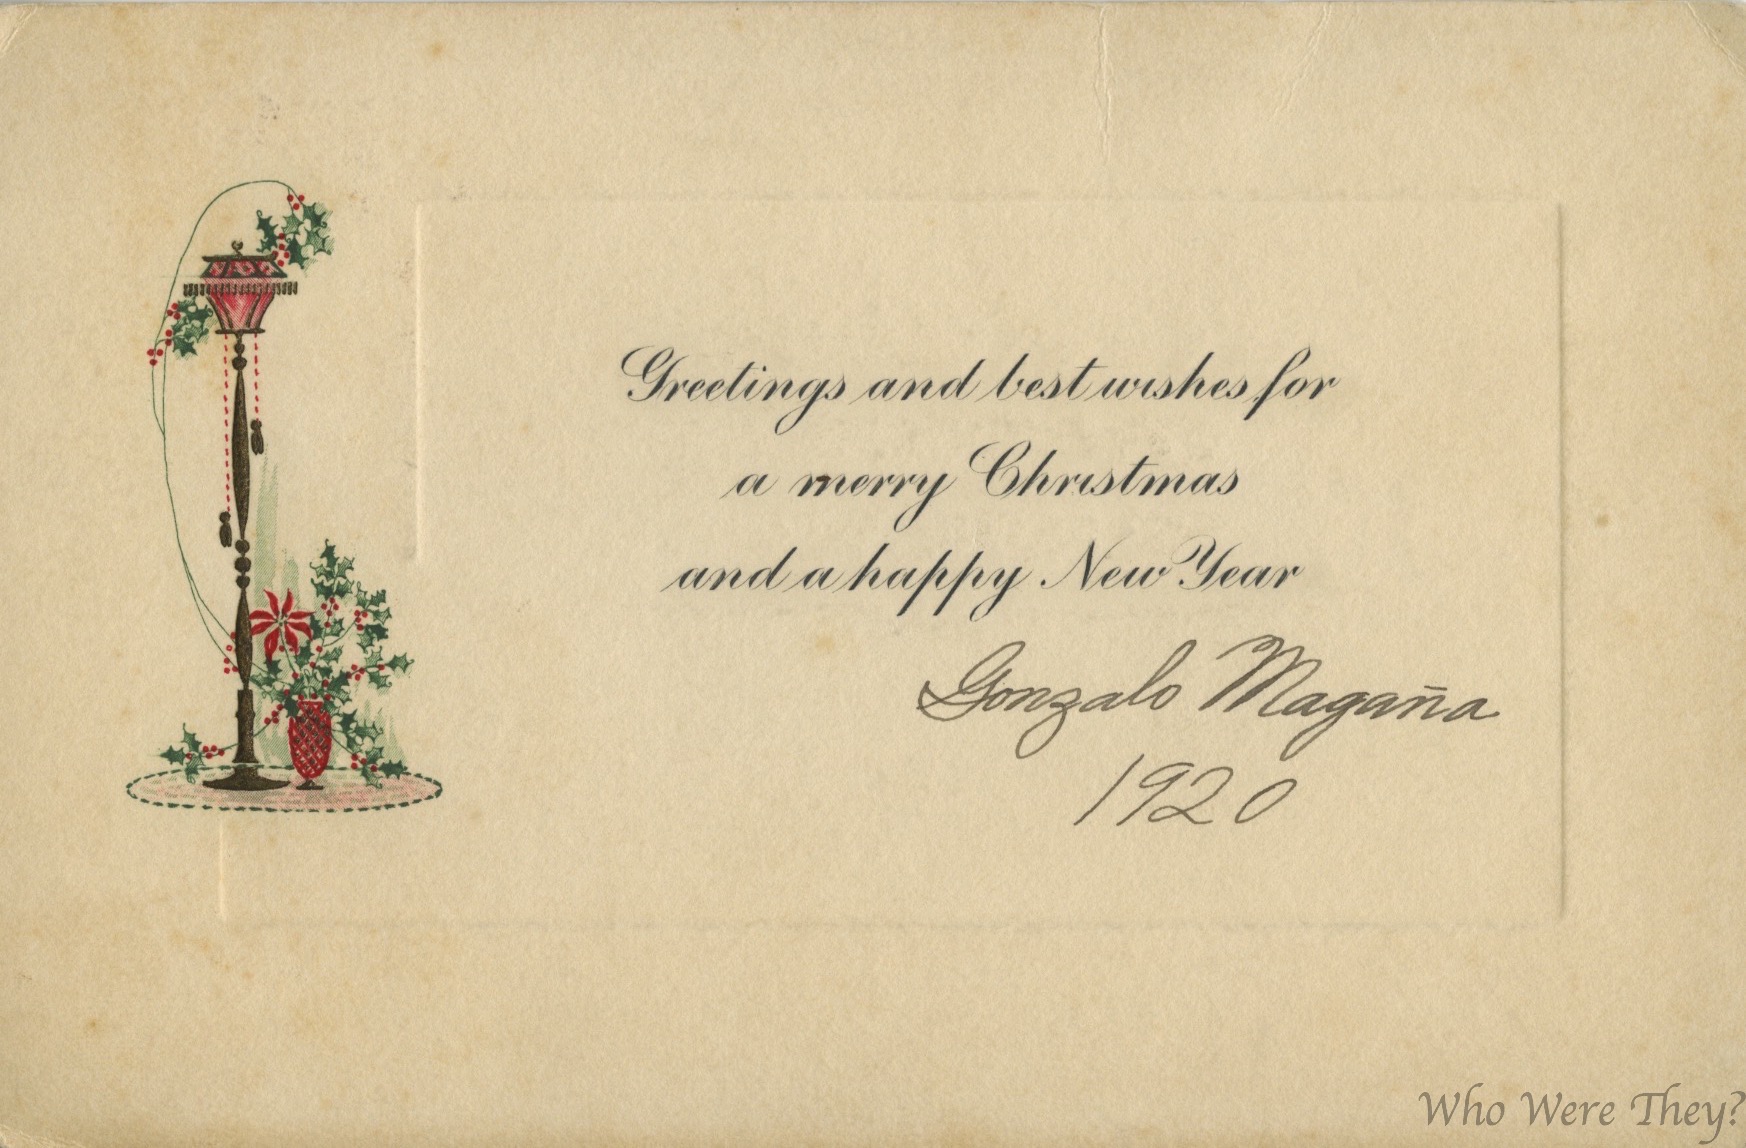 Greetings and best wishes for
a merry Christmas
and a happy New Year
Gonzalo Magaña
1920
Who Were They?